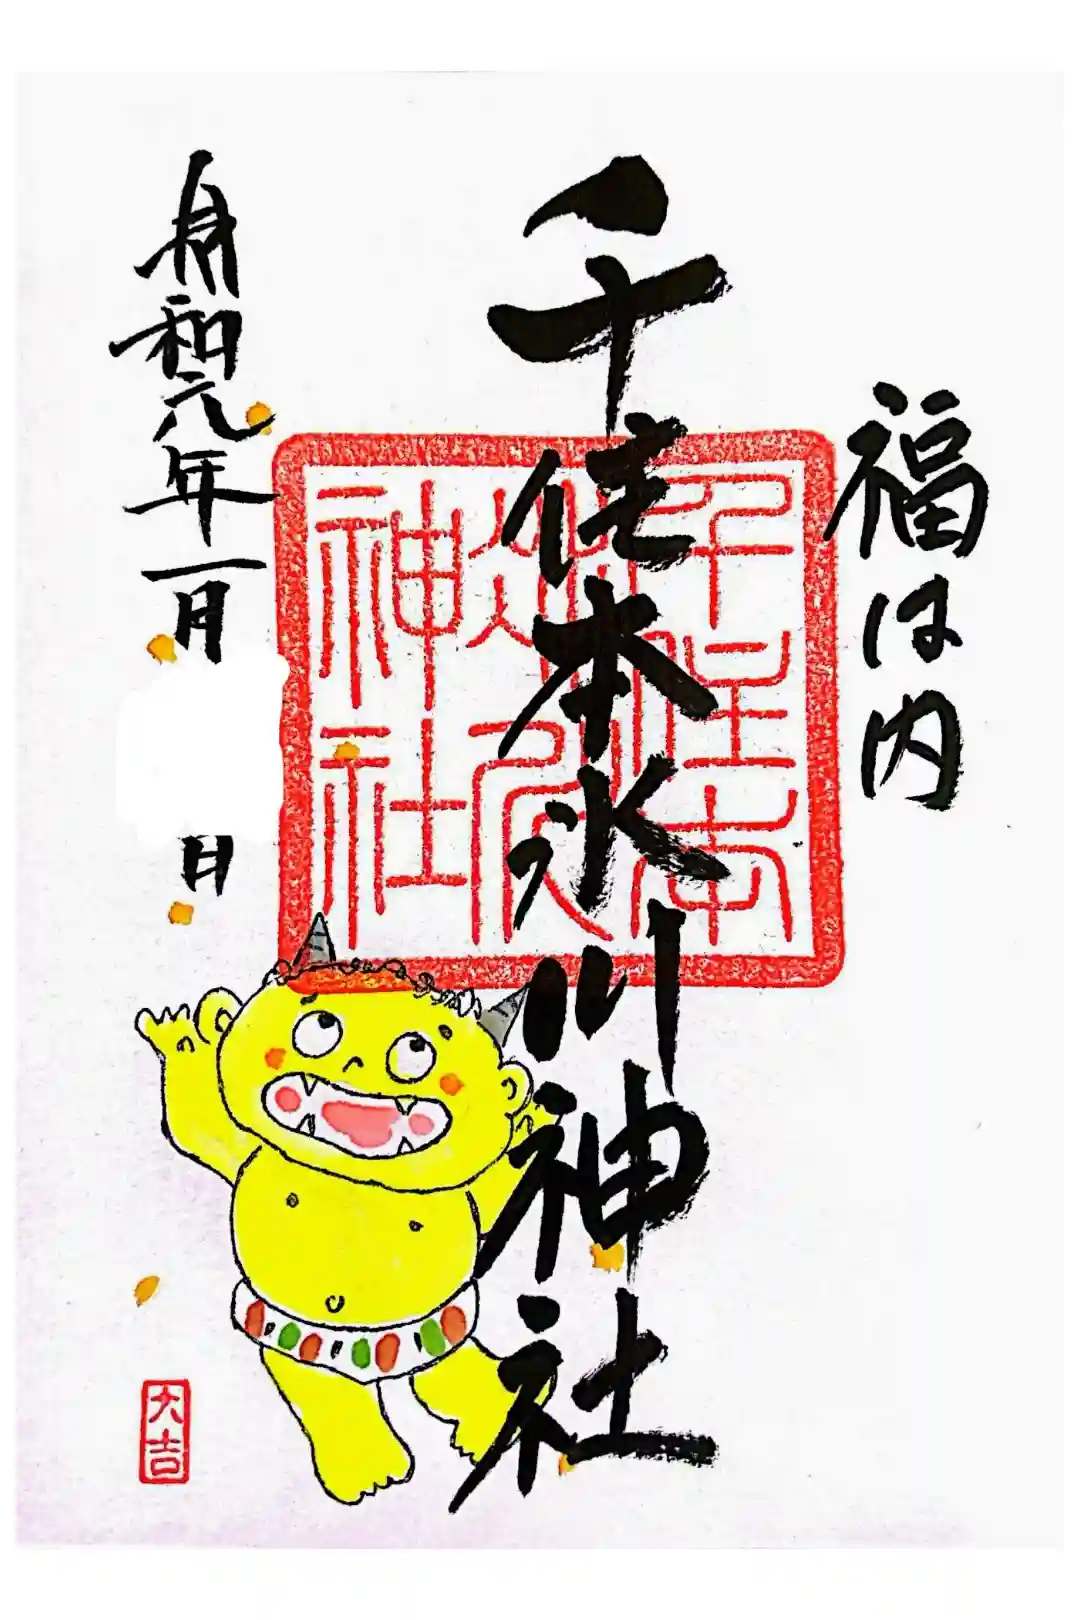 福は内
千住本氷川神社
千住本
氷川
神社
和 年一月
日
大吉